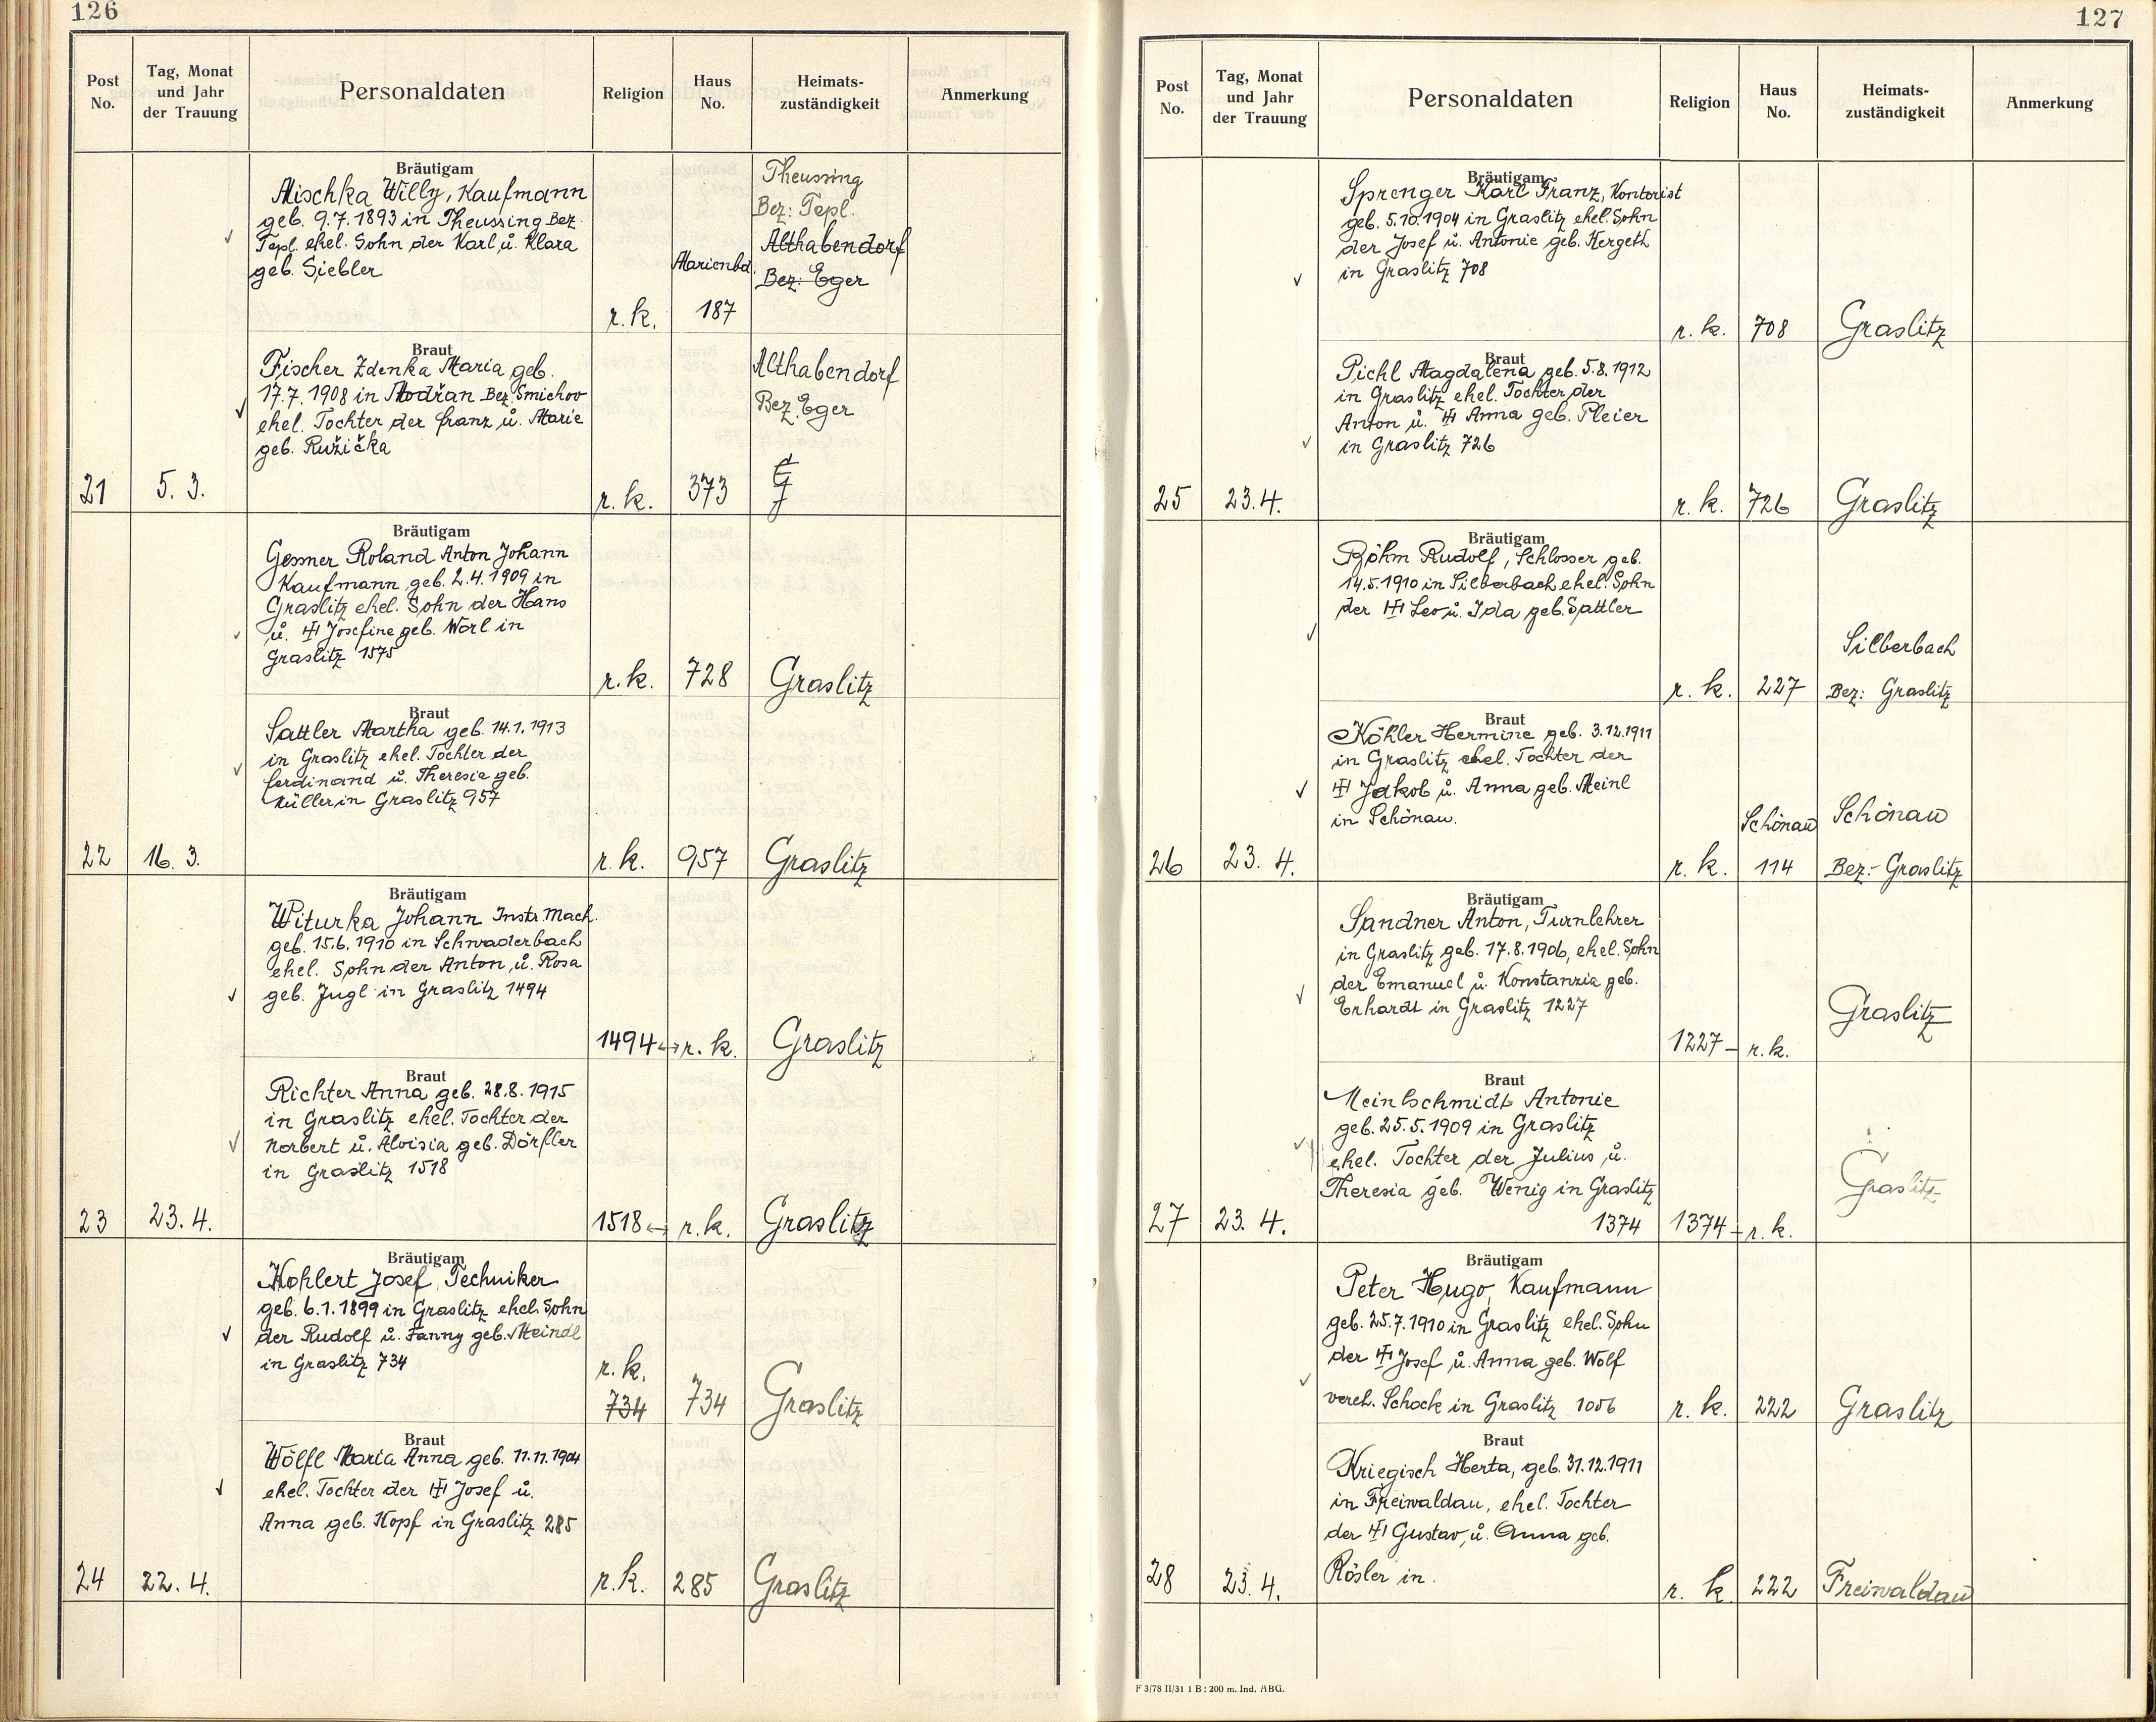 126
Post No.
Tag, Monat und Jahr der Trauung
Personaldaten
Religion
Haus No.
Heimats-zuständigkeit
Anmerkung
Bräutigam
Mischka Willy, Kaufmann
geb. 9.7.1893 in Theussing Bez.
Tepl. ehel. Sohn der Karl u. Klara
geb. Siebler
r. k.
Marienbd.
187
Theussing
Bez: Tepl.
Althabendorf
Bez: Eger
Braut
Fischer Zdenka Maria geb.
17.7.1908 in Modřan Bez. Smichov
ehel. Tochter der Franz u. Marie
geb. Ružička
21
5. 3.
r. k.
373
Althabendorf
Bez. Eger
Bräutigam
Gessner Roland Anton Johann
Kaufmann, geb. 2.4.1909 in
Graslitz ehel. Sohn der Hans
u. Josefine geb. Wörl in
Graslitz 1575
r. k.
728
Graslitz
Braut
Sattler Martha geb. 14.1.1913
in Graslitz ehel. Tochter der
Ferdinand u. Theresia geb.
Müller in Graslitz 957
22
16. 3.
r. k.
957
Graslitz
Bräutigam
Witurka Johann Instr. Mach.
geb. 15.6.1910 in Schwaderbach
ehel. Sohn der Anton, u. Rosa
geb. Jugl in Graslitz 1494
1494 ↔ r. k.
Graslitz
Braut
Richter Anna geb. 28.8.1915
in Graslitz ehel. Tochter der
Norbert u. Aloisia geb. Dörfler
in Graslitz 1518
23
23. 4.
1518 ↔ r. k.
Graslitz
Bräutigam
Kohlert Josef, Techniker
geb. 6.1.1899 in Graslitz ehel. Sohn
der Rudolf u. Fanny geb. Meindl
in Graslitz 734
r. k.
734
734
Graslitz
Braut
Wölfl Maria Anna geb. 11.11.1904
ehel. Tochter der Josef u.
Anna geb. Kopf in Graslitz 285
24
22. 4.
r. k.
285
Graslitz
127
Post No.
Tag, Monat und Jahr der Trauung
Personaldaten
Religion
Haus No.
Heimats-zuständigkeit
Anmerkung
Bräutigam
Sprenger Karl Franz, Kontorist
geb. 5.10.1904 in Graslitz ehel. Sohn
der Josef u. Antonie geb. Kergeth
in Graslitz 708
r. k.
708
Graslitz
Braut
Pichl Magdalena geb. 5.8.1912
in Graslitz ehel. Tochter der
Anton u. Anna geb. Pleier
in Graslitz 726
25
23. 4.
r. k.
726
Graslitz
Bräutigam
Böhm Rudolf, Schlosser geb.
14.5.1910 in Silberbach ehel. Sohn
der Leo u. Ida geb. Sattler
r. k.
227
Silberbach
Bez: Graslitz
Braut
Köhler Hermine geb. 3.12.1911
in Graslitz ehel. Tochter der
Jakob u. Anna geb. Meinl
in Schönau.
26
23. 4.
r. k.
Schönau
114
Schönau
Bez.- Graslitz
Bräutigam
Sandner Anton, Turnlehrer
in Graslitz geb. 17.8.1906, ehel. Sohn
der Emanuel u. Konstanzia geb.
Erhardt in Graslitz 1227
1227 - r. k.
Graslitz
Braut
Meinlschmidt Antonie
geb. 25.5.1909 in Graslitz
ehel. Tochter der Julius u.
Theresia geb. Wenig in Graslitz
1374
27
23. 4.
1374 - r. k.
Graslitz
Bräutigam
Peter Hugo, Kaufmann
geb. 25.7.1910 in Graslitz ehel. Sohn
der Josef u. Anna geb. Wolf
vereh. Schock in Graslitz 1006
r. k.
222
Graslitz
Braut
Kriegisch Herta, geb. 31.12.1911
in Freiwaldau, ehel. Tochter
der Gustav, u. Anna geb.
Rösler in.
28
23. 4.
r. k.
222
Freiwaldau
F 3/78 II/31 1 B : 200 m. Ind. ABG.